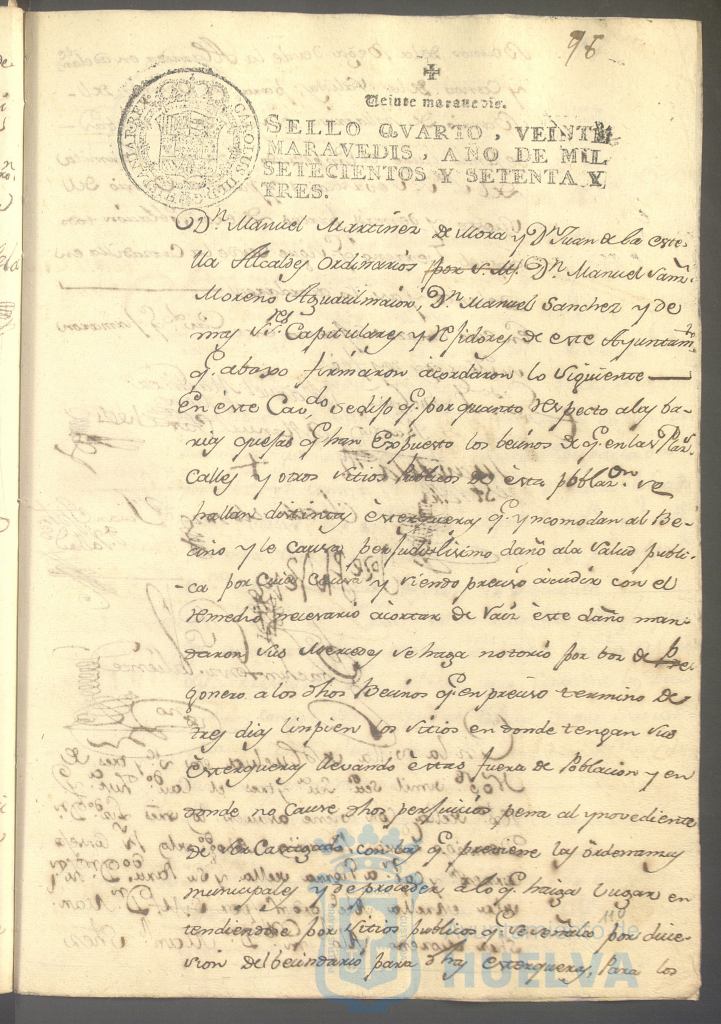 96
Veinte maravedis.
SELLO QVARTO, VEINTE
MARAVEDIS, AÑO DE MIL
SETECIENTOS Y SETENTA Y
TRES.
Dn. Manuel Martinez de Mora y Dn. Juan de la este-
lla Alcaldes Ordinarios por S. M. Dn. Manuel
Moreno Dn. Manuel Sanchez y de
mas Sres. Capitulares y Rexidores de este Ayuntamto.
q. abaxo firmaron acordaron lo siguiente
En este Cavdo. se dijo q. por quanto respecto a las ba-
rias quejas q. han expuesto los becinos de q. en las Plas.
Calles y otros sitios publicos de esta poblazon. se
hallan distintas esterqueras q. yncomodan al Be-
cino y le causa perjudisilisimo daño a la salud publi-
ca por cuia causa y siendo preciso acudir con el
remedio necesario acortar de raiz este daño man-
daron sus mercedes se haga notorio por voz de Pre-
gonero a los dhos Becinos q. en preciso termino de
tres dias linpien los sitios en donde tengan sus
esterqueras llevando estas fuera de Poblacion y en
donde no cause dhos perjuicios pena al ynovediente
de ser castigado con la q. previene las ordenanzas
municipales y de proceder a lo q. haiga lugar en
tendiendose por sitios publicos q. se señala por
del becindario para dhas esterqueras, Para los
HUELVA